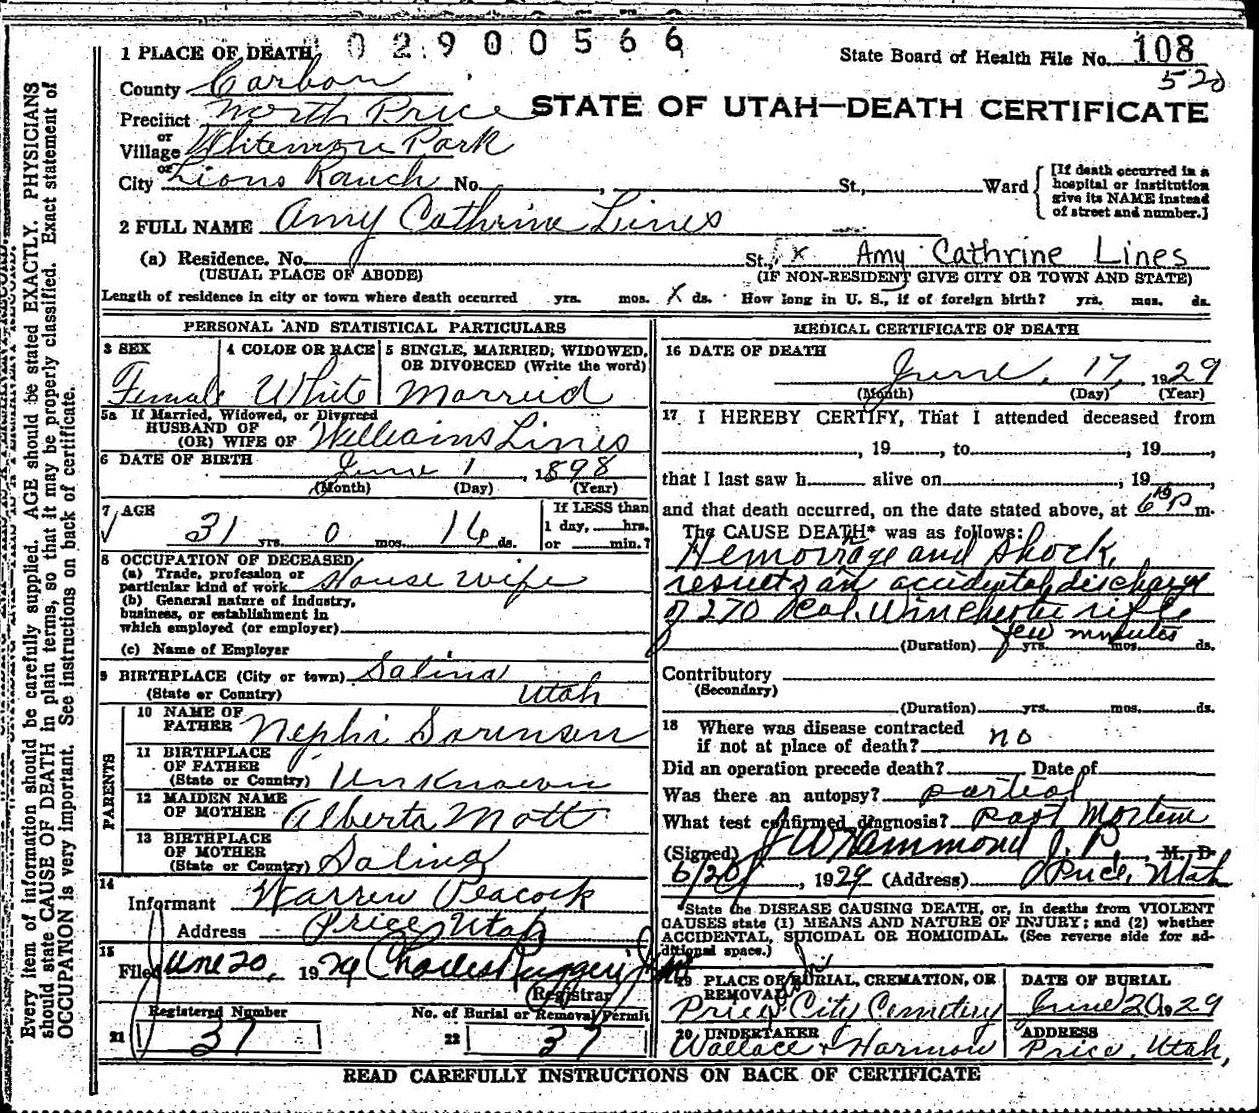 02900566
1 PLACE OF DEATH
State Board of Health File No. 108
520
County Carbon
Precinct North Price
STATE OF UTAH—DEATH CERTIFICATE
or
Village Whitemore Park
or
City Lions Ranch No. , St., Ward
[If death occurred in a hospital or institution give its NAME instead of street and number.]
2 FULL NAME Amy Cathrine Lines
(a) Residence. No. St., x Amy Cathrine Lines
(USUAL PLACE OF ABODE) (IF NON-RESIDENT GIVE CITY OR TOWN AND STATE)
Length of residence in city or town where death occurred yrs. mos. x ds. How long in U. S., if of foreign birth? yrs. mos. ds.
PERSONAL AND STATISTICAL PARTICULARS
3 SEX 4 COLOR OR RACE 5 SINGLE, MARRIED, WIDOWED, OR DIVORCED (Write the word)
Female White Married
5a If Married, Widowed, or Divorced
HUSBAND OF
(OR) WIFE OF Williams Lines
6 DATE OF BIRTH June 1, 1898
(Month) (Day) (Year)
7 AGE
If LESS than
31 yrs. 0 mos. 16 ds.
1 day, hrs.
or min.?
8 OCCUPATION OF DECEASED
(a) Trade, profession or
particular kind of work House wife
(b) General nature of industry,
business, or establishment in
which employed (or employer)
(c) Name of Employer
9 BIRTHPLACE (City or town) Salina
(State or Country) Utah
PARENTS
10 NAME OF
FATHER Nephi Sorensen
11 BIRTHPLACE
OF FATHER
(State or Country) Unknown
12 MAIDEN NAME
OF MOTHER Alberta Mott
13 BIRTHPLACE
OF MOTHER
(State or Country) Salina
14
Informant Warren Peacock
Address Price Utah
15
Filed June 20, 1929 Charles Ruggeri
Registrar
Registered Number No. of Burial or Removal Permit
21 37 22 37
MEDICAL CERTIFICATE OF DEATH
16 DATE OF DEATH
June, 17, 1929
(Month) (Day) (Year)
17 I HEREBY CERTIFY, That I attended deceased from
, 19 , to , 19 ,
that I last saw h alive on , 19 ,
and that death occurred, on the date stated above, at 6 P m.
The CAUSE DEATH* was as follows:
Hemorrage and shock,
results an accidental discharge
of 270 cal. Winchester rifle
few minutes
(Duration) yrs. mos. ds.
Contributory
(Secondary)
(Duration) yrs. mos. ds.
18 Where was disease contracted
if not at place of death? no
Did an operation precede death? Date of
Was there an autopsy? partial
What test confirmed diagnosis? Post Mortem
(Signed) J W Hammond J. P. M. D.
6/20/, 1929 (Address) Price, Utah
State the DISEASE CAUSING DEATH, or, in deaths from VIOLENT
CAUSES state (1) MEANS AND NATURE OF INJURY; and (2) whether
ACCIDENTAL, SUICIDAL OR HOMICIDAL. (See reverse side for ad-
ditional space.)
19 PLACE OF BURIAL, CREMATION, OR
REMOVAL
DATE OF BURIAL
Price City Cemetery June 20 1929
20 UNDERTAKER ADDRESS
Wallace & Harmon Price, Utah,
READ CAREFULLY INSTRUCTIONS ON BACK OF CERTIFICATE
Every item of information should be carefully supplied. AGE should be stated EXACTLY. PHYSICIANS
should state CAUSE OF DEATH in plain terms, so that it may be properly classified. Exact statement of
OCCUPATION is very important. See instructions on back of certificate.